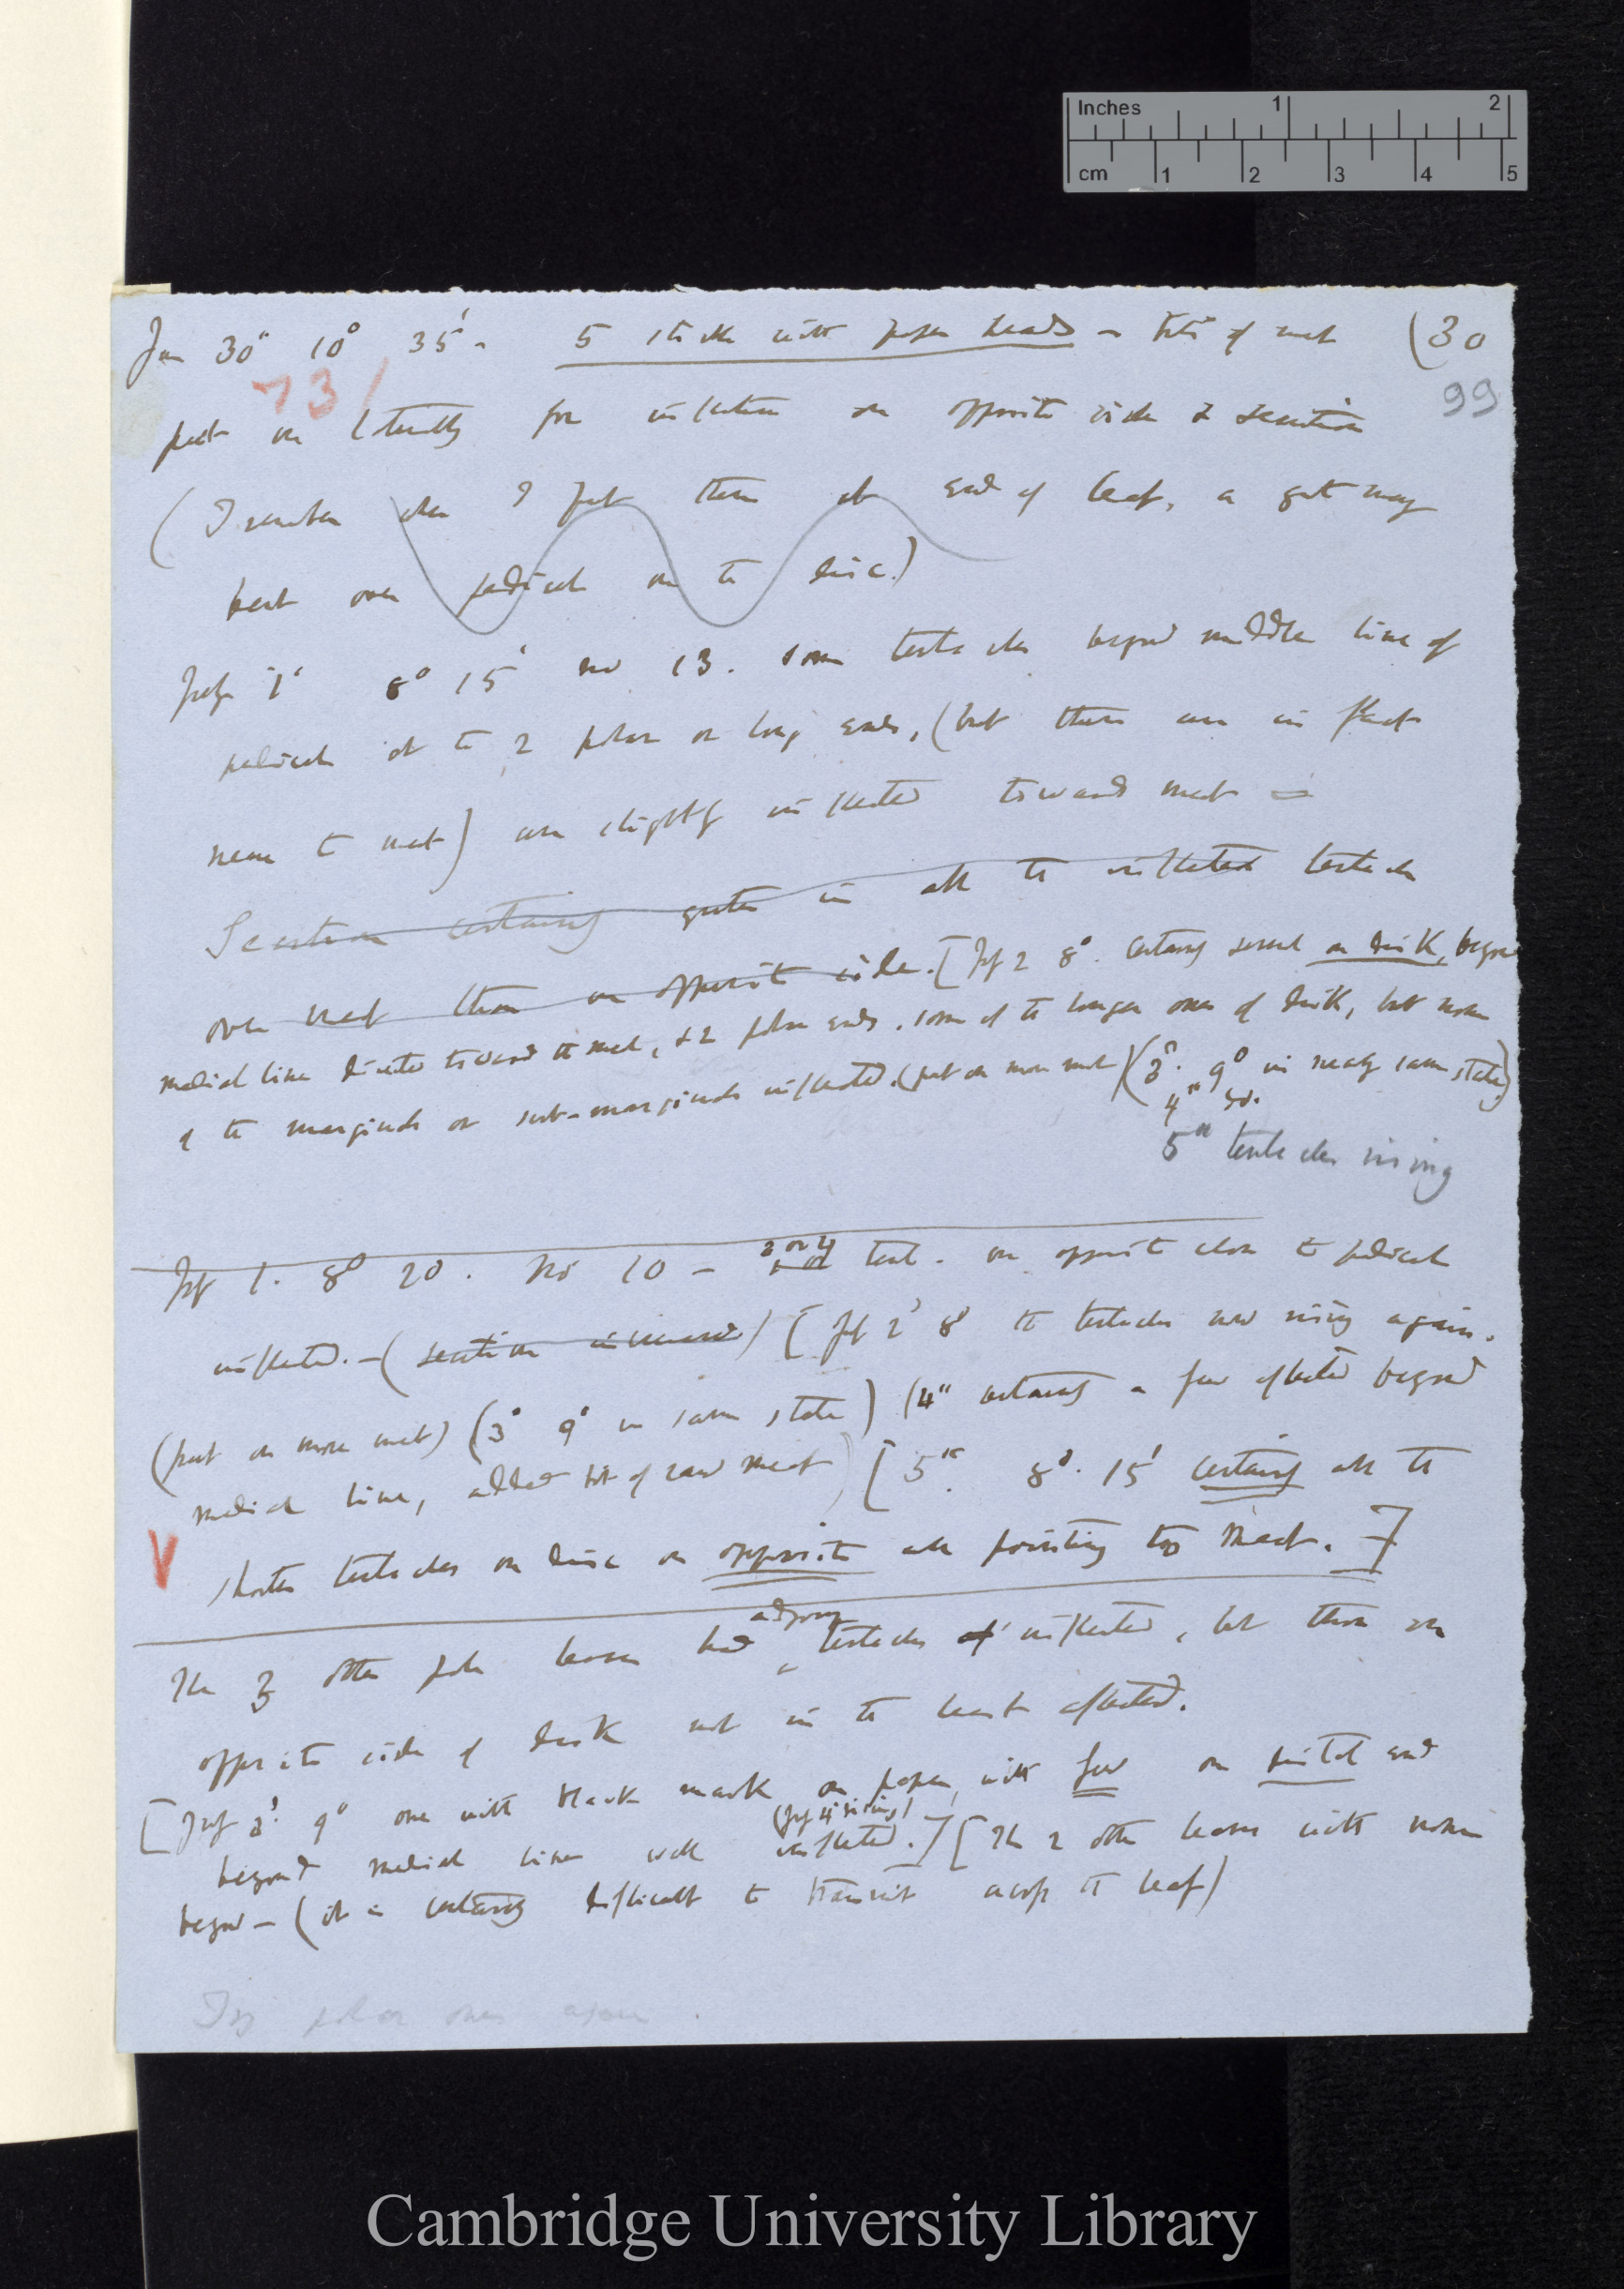 Inches 1 2
cm 1 2 3 4 5
Jan 30" 10° 35'. 5 sticks with paper heads — bits of meat (30
73/ 99
put on laterally for inflection on opposite side & secretion
(I remember when I put them at end of leaf, a great many
bent over pedicel on to disc.)
Feby 1' 8° 15' no 13. some tentacles beyond middle line of
pedicels at the 2 polar or long ends, (but these are in fact
near to meat) are slightly inflected towards meat —
Secretion certainly greater in all the inflected tentacles
over meat than on opposite side. [Feb 2 8°. certainly several on disk, beyond
medial line directed toward the meat, & 2 polar ends. some of the longer ones of disk, but none
of the marginals or sub-marginals inflected. (put on more meat) (3° 9° in nearly same state)
4"
5" tentacles rising
Feb 1. 8° 20. No 10 — 3 or 4 tent. on opposite close to pedicel
inflected. — (secretion increased) [Feb 2' 8° the tentacles now rising again.
(put on more meat) (3° 9° in same state) (4" certainly a few affected beyond
medial line, added bit of raw meat) [5" 8°. 15' certainly all the
V shorter tentacles on disc on opposite all pointing to meat.]
The 3 other leaves had adjoining tentacles inflected, but those on
opposite side of disk not in the least affected.
[Feb 3' 9° one with black mark on paper, with few on distal end
(Feb 4 rising)
beyond medial line well inflected.] [The 2 other leaves with none
beyond — (it is certainly difficult to transmit across the leaf)
Try polar ones again.
Cambridge University Library